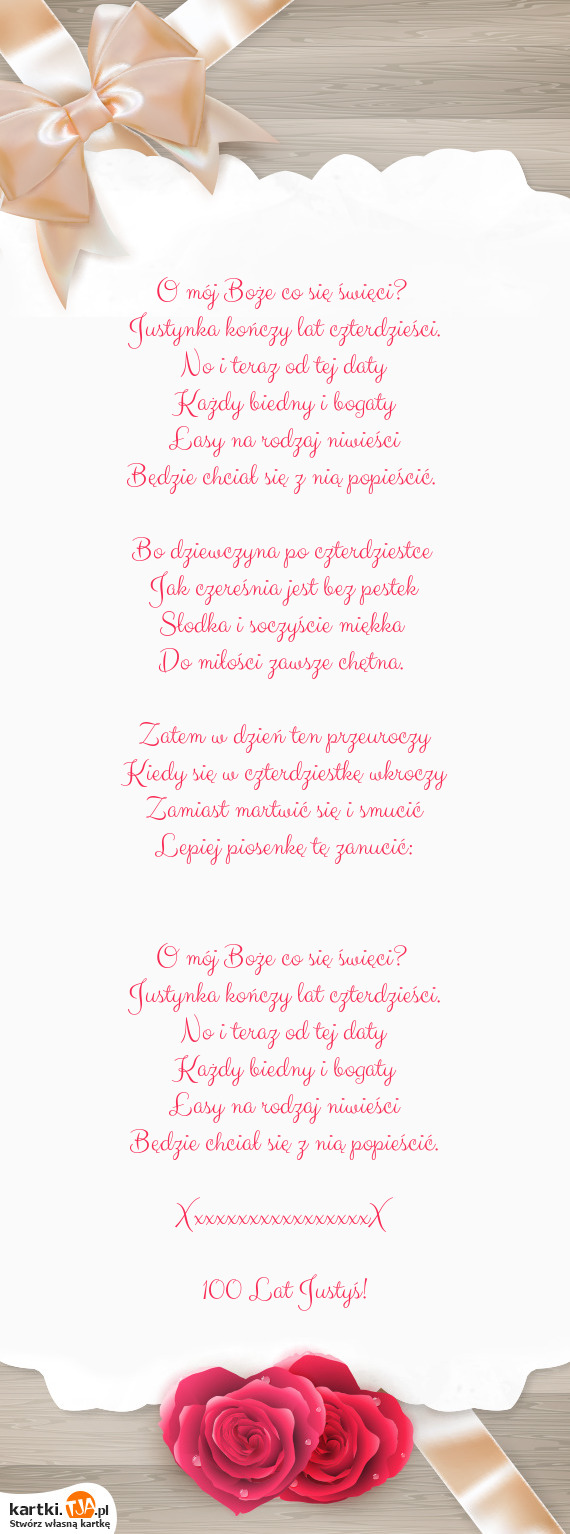 O mój Boże co się święci?
Justynka kończy lat czterdzieści.
No i teraz od tej daty
Każdy biedny i bogaty
Łasy na rodzaj niwieści
Będzie chciał się z nią popieścić.
Bo dziewczyna po czterdziestce
Jak czereśnia jest bez pestek
Słodka i soczyście miękka
Do miłości zawsze chętna.
Zatem w dzień ten przeuroczy
Kiedy się w czterdziestkę wkroczy
Zamiast martwić się i smucić
Lepiej piosenkę tę zanucić:
O mój Boże co się święci?
Justynka kończy lat czterdzieści.
No i teraz od tej daty
Każdy biedny i bogaty
Łasy na rodzaj niwieści
Będzie chciał się z nią popieścić.
XxxxxxxxxxxxxxxxxX
100 Lat Justyś!
kartki.TJA.pl
Stwórz własną kartkę